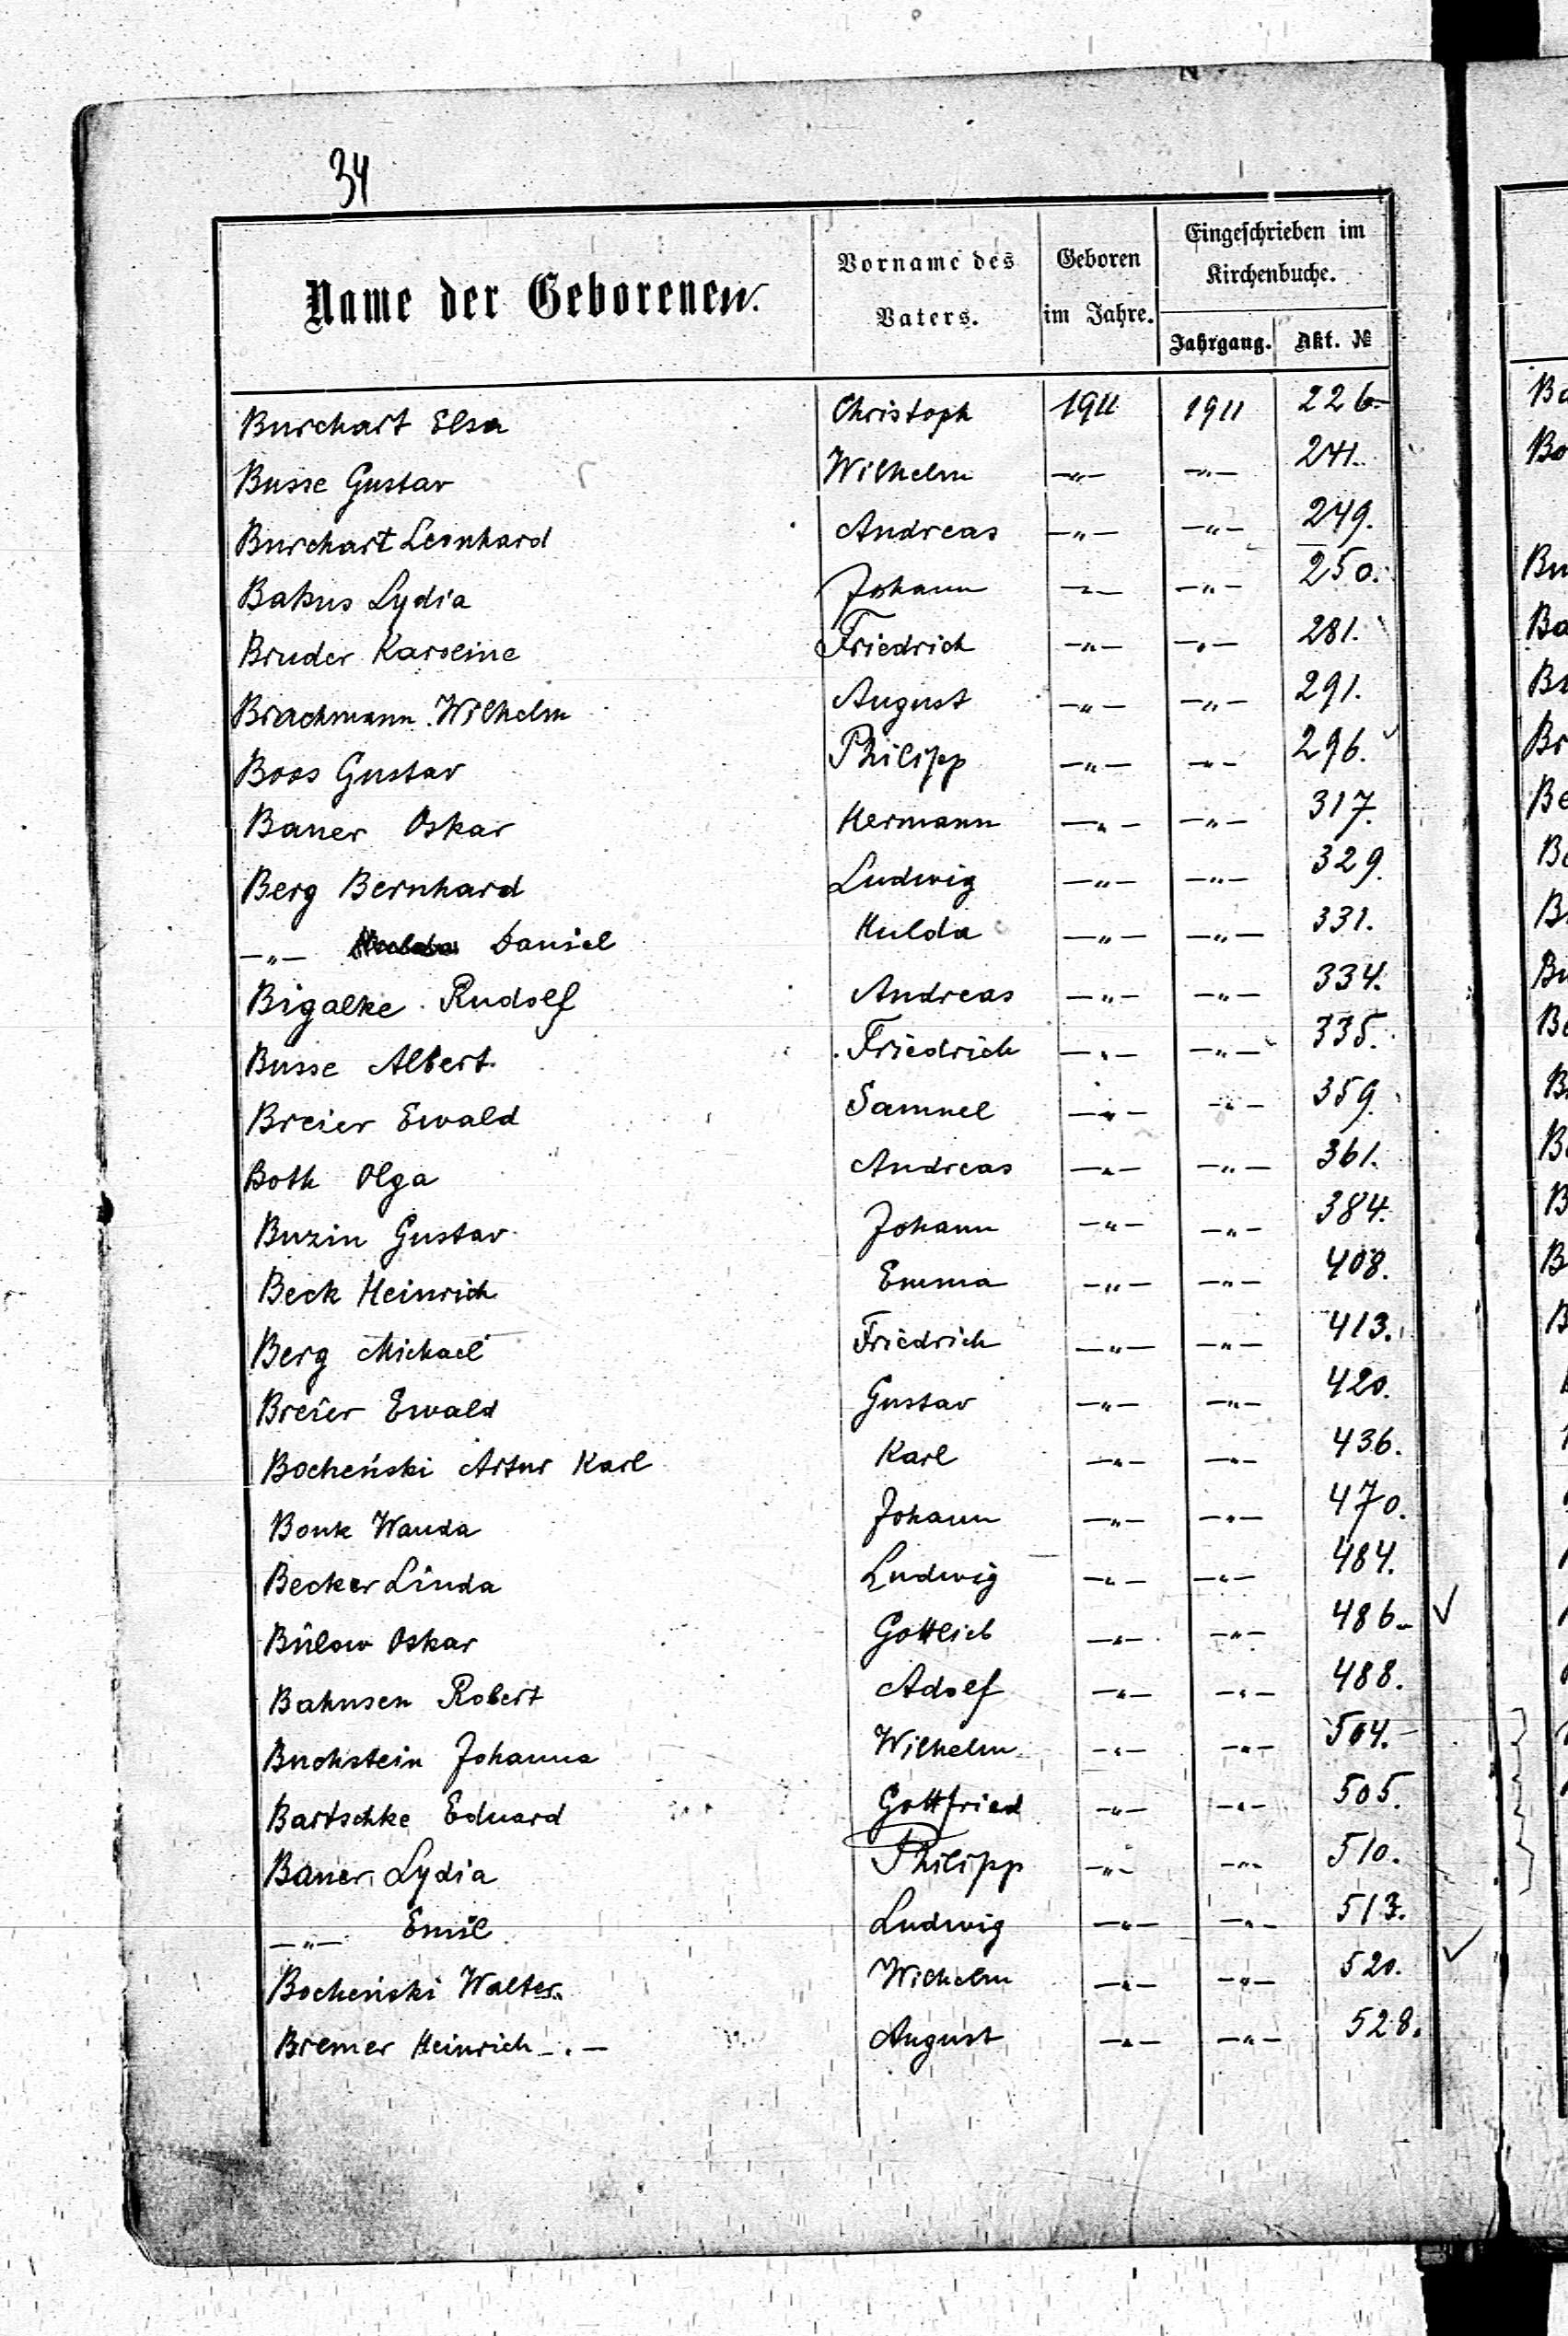 34
Name der Geborenen.
Vorname des Vaters.
Geboren im Jahre.
Eingeschrieben im Kirchenbuche.
Jahrgang. Akt. №
Burchart Elsa Christoph 1911 1911 226.
Busse Gustav Wilhelm —„— —„— 241.
Burchart Leonhard Andreas —„— —„— 249.
Bakus Lydia Johann —„— —„— 250.
Bruder Karoline Friedrich —„— —„— 281.
Brachmann Wilhelm August —„— —„— 291.
Boos Gustav Philipp —„— —„— 296.
Bauer Oskar Hermann —„— —„— 317.
Berg Bernhard Ludwig —„— —„— 329.
—„— Daniel Hulda —„— —„— 331.
Bigalke Rudolf Andreas —„— —„— 334.
Busse Albert Friedrich —„— —„— 335.
Breier Ewald Samuel —„— —„— 359.
Both Olga Andreas —„— —„— 361.
Buzin Gustav Johann —„— —„— 384.
Beck Heinrich Emma —„— —„— 408.
Berg Michael Friedrich —„— —„— 413.
Breier Ewald Gustav —„— —„— 420.
Bocheński Artur Karl Karl —„— —„— 436.
Bonk Wanda Johann —„— —„— 470.
Becker Linda Ludwig —„— —„— 484.
Bülow Oskar Gottlieb —„— —„— 486. ✓
Bahnsen Robert Adolf —„— —„— 488.
Buchstein Johanna Wilhelm —„— —„— 504.
Bartschke Eduard Gottfried —„— —„— 505.
Bauer Lydia Philipp —„— —„— 510.
—„— Emil Ludwig —„— —„— 513.
Bocheński Walter Wilhelm —„— —„— 520. ✓
Bremer Heinrich —.— August —„— —„— 528.